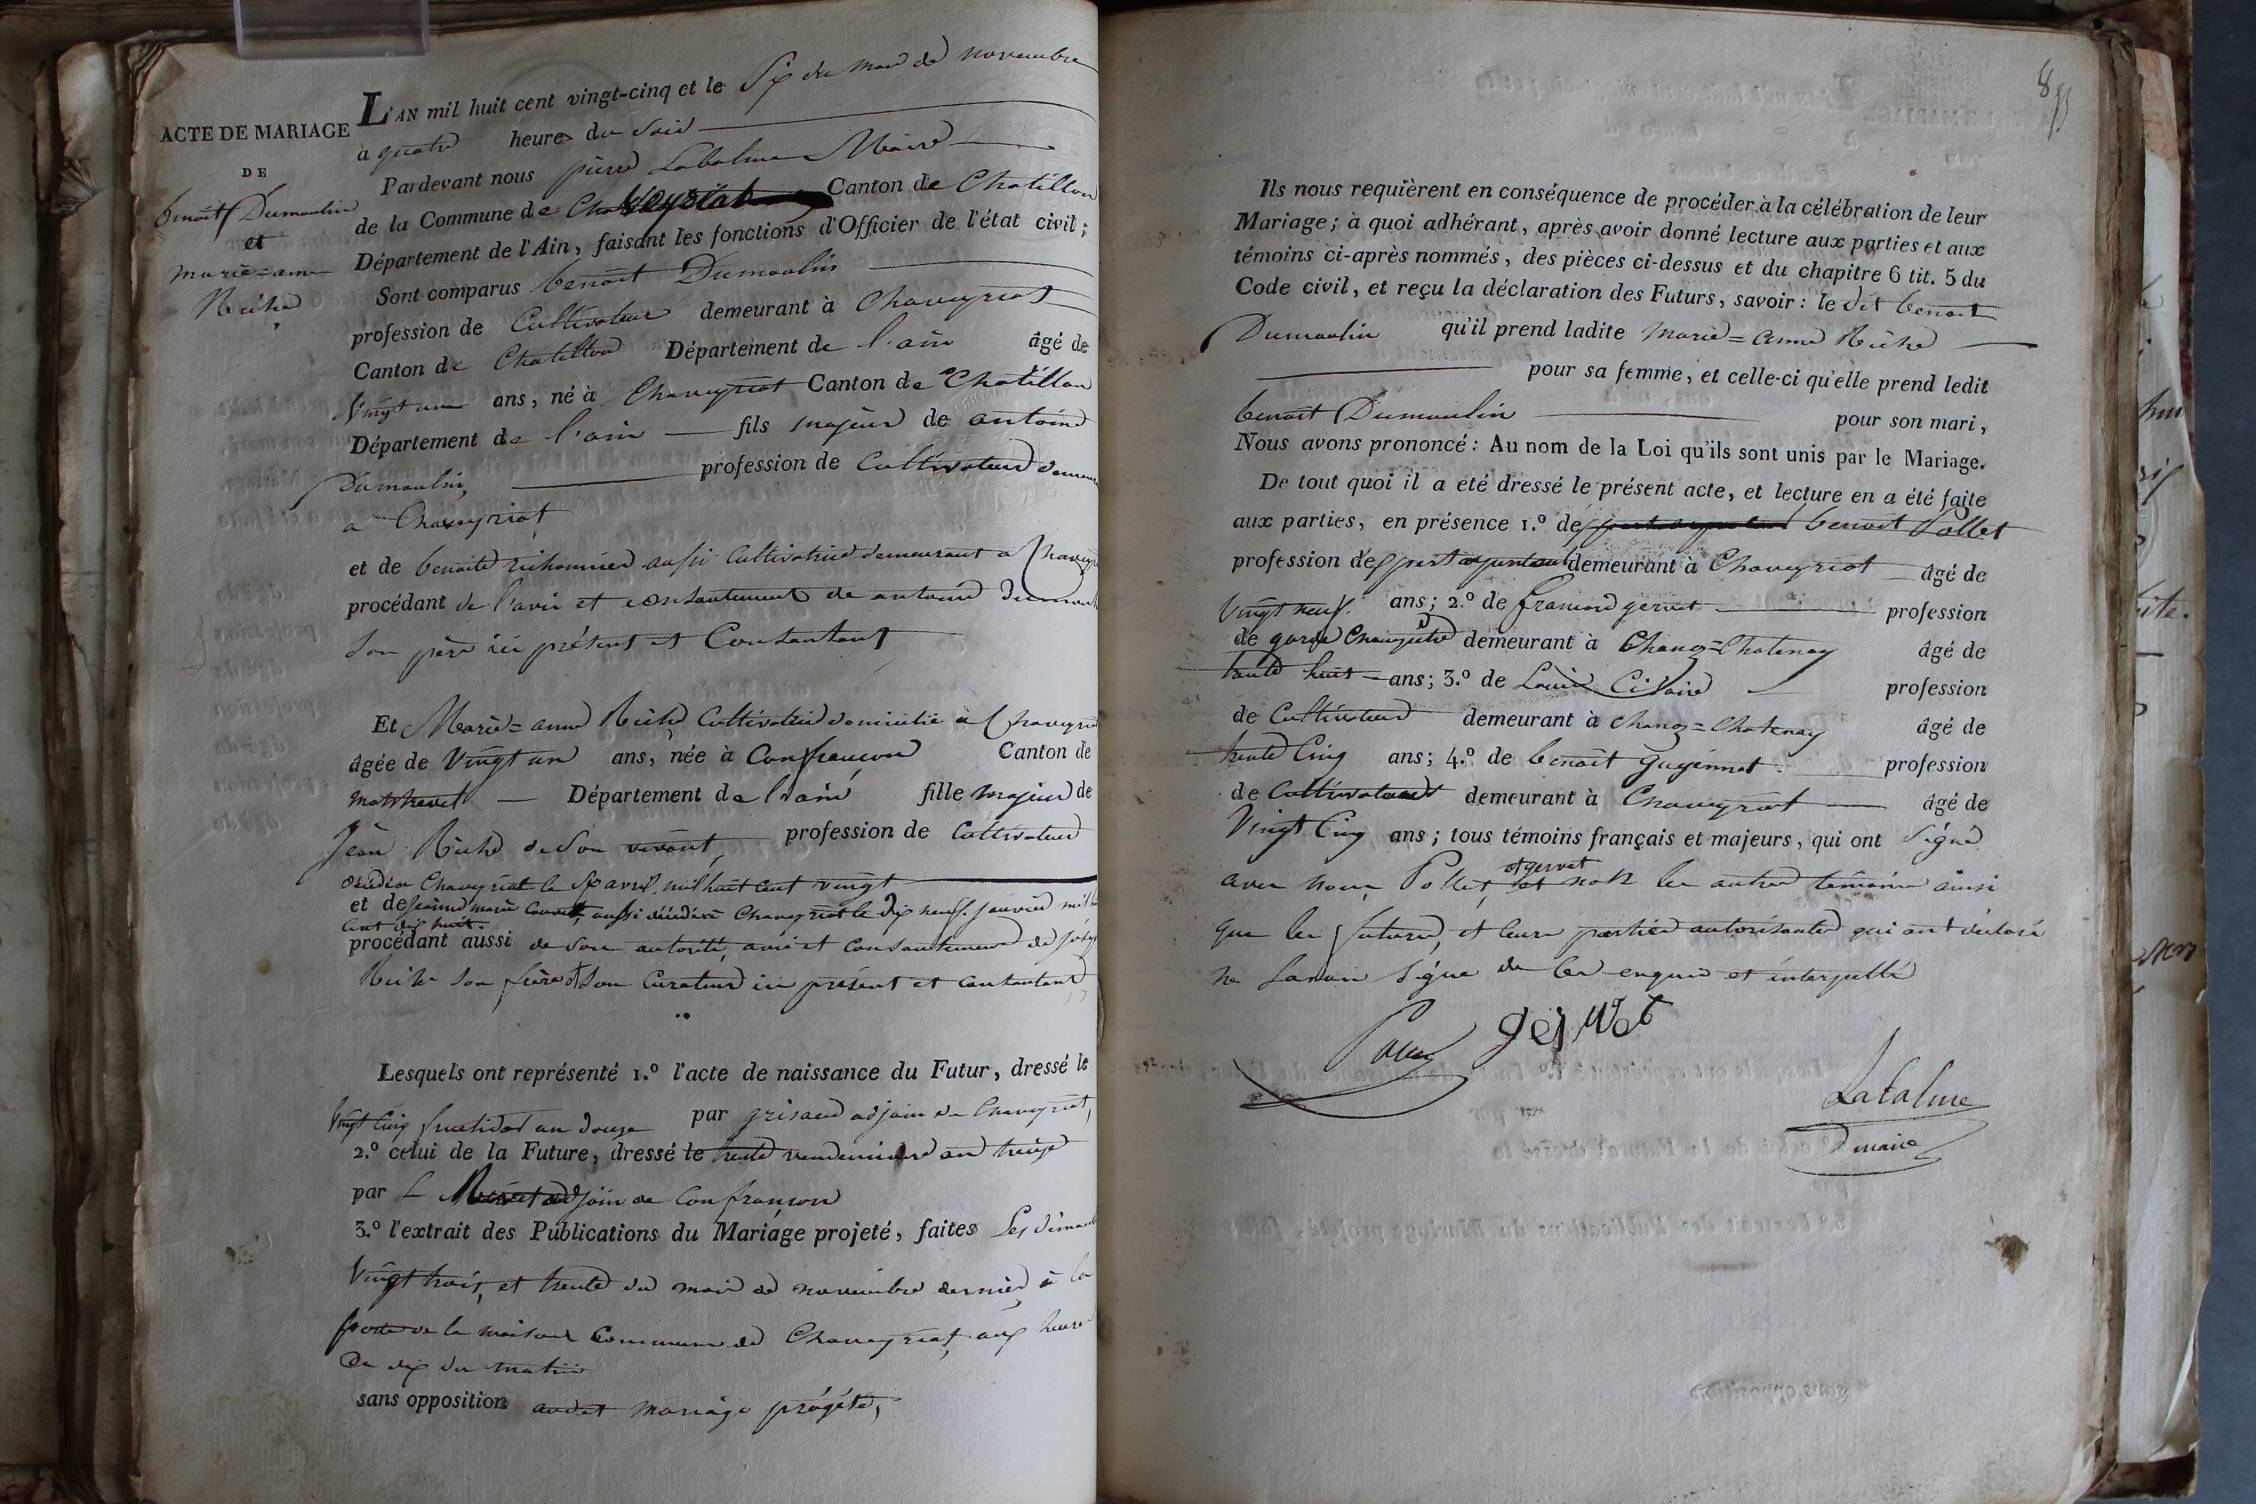 ACTE DE MARIAGE
DE
benoit Dumoulin
et
marie=anne
Riche
L'AN mil huit cent vingt-cinq et le Six du mois de novembre
à quatre heures du Soir
Pardevant nous pierre Labalme Maire
de la Commune de Chaveyriat Canton de Chatillon
Département de l'Ain, faisant les fonctions d'Officier de l'état civil;
Sont comparus benoit Dumoulin
profession de Cultivateur demeurant à Chaveyriat
Canton de Chatillon Département de l'ain âgé de
Vingt un ans, né à Chaveyriat Canton de Chatillon
Département de l'ain fils majeur de antoine
Dumoulin, profession de Cultivateur demeurant
a Chaveyriat
et de benoite aussi Cultivatrice demeurant a Chaveyriat
procédant de l'avis et consentement de antoine Dumoulin
Son père ici présent et Consentant
Et Marie=anne Riche Cultivatrice domicilié à Chaveyriat
âgée de Vingt un ans, née à Confrançon Canton de
montrevel Département de l'ain fille majeur de
Jean Riche de Son vivant, profession de Cultivateur
décédé a Chaveyriat le Six avril mil huit cent vingt
et de marie aussi décédé a Chaveyriat le dix neuf janvier mil huit
Cent dix huit.
procédant aussi de Son autorité, avis et consentement de
Riche Son frère et Son Curateur ici présent et Consentant
Lesquels ont représenté 1.º l'acte de naissance du Futur, dressé le
Vingt Cinq fructidor an douze par grisaud adjoin de Chaveyriat,
2.º celui de la Future, dressé le trente vendemiaire an treize
par adjoin de Confrançon
3.º l'extrait des Publications du Mariage projeté, faites Les dimanches
Vingt trois, et trente du mois de novembre dernier à la
porte de la maison Commune de Chaveyriat, aux heures
De dix du matin
sans opposition audit mariage progété,
Ils nous requièrent en conséquence de procéder à la célébration de leur
Mariage; à quoi adhérant, après avoir donné lecture aux parties et aux
témoins ci-après nommés, des pièces ci-dessus et du chapitre 6 tit. 5 du
Code civil, et reçu la déclaration des Futurs, savoir: le dit benoit
Dumoulin qu'il prend ladite marie=anne Riche
pour sa femme, et celle-ci qu'elle prend ledit
benoit Dumoulin pour son mari,
Nous avons prononcé: Au nom de la Loi qu'ils sont unis par le Mariage.
De tout quoi il a été dressé le présent acte, et lecture en a été faite
aux parties, en présence 1.º de benoit Pollet
profession de demeurant à Chaveyriat âgé de
vingt neuf. ans; 2.º de gervet profession
de garde Champetre demeurant à Chanoz=Chatenay âgé de
trente huit ans; 3.º de Louis profession
de Cultivateur demeurant à Chanoz=Chatenay âgé de
trente Cinq ans; 4.º de benoit profession
de Cultivateur demeurant à Chaveyriat âgé de
Vingt Cinq ans; tous témoins français et majeurs, qui ont Signé
avec nous Pollet, et gervet et non les autres témoins ainsi
que les futures, et leurs parties autorisantes qui ont déclaré
ne Savoir Signé de Ces enquis et interpellé
gervet
Labalme
maire